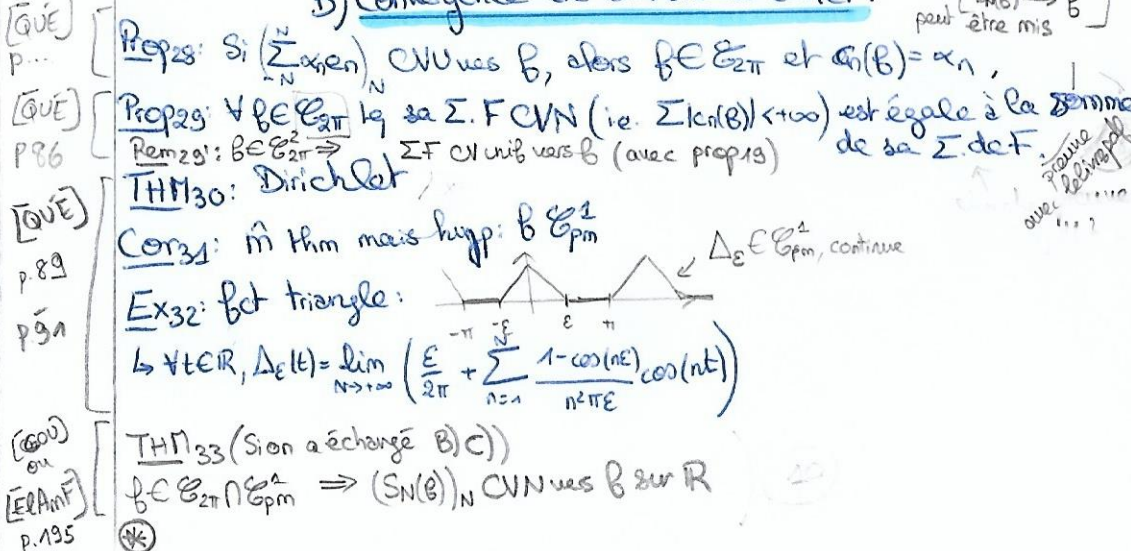 [QUÉ]
p...
peut être mis
Prop28: Si (∑_{-N}^{N} αnen)_N CVU vers f, alors f ∈ C_{2π} et cn(f) = αn,
[QUÉ]
p86
Prop29: ∀f ∈ C_{2π} tq sa Σ.F CVN (ie. Σ|cn(f)| < +∞) est égale à la somme
de sa Σ. de F.
Rem29': f ∈ C²_{2π} ⇒ ΣF CV unif vers f (avec prop19)
preuve
avec
[QUÉ]
p.89
p91
THM30: Dirichlet
Cor31: m̂ thm mais hyp: f C¹pm
Δε ∈ C¹pm, continue
Ex32: fct triangle:
-π -ε ε π
↳ ∀t ∈ R, Δε(t) = lim_{N→+∞} (ε/2π + ∑_{n=1}^{N} (1-cos(nε))/(n²πε) cos(nt))
[GOU]
ou
[ElAmF]
p.195
THM33 (Si on a échangé B) C))
f ∈ C_{2π} ∩ C¹pm ⇒ (S_N(f))_N CVN vers f sur R